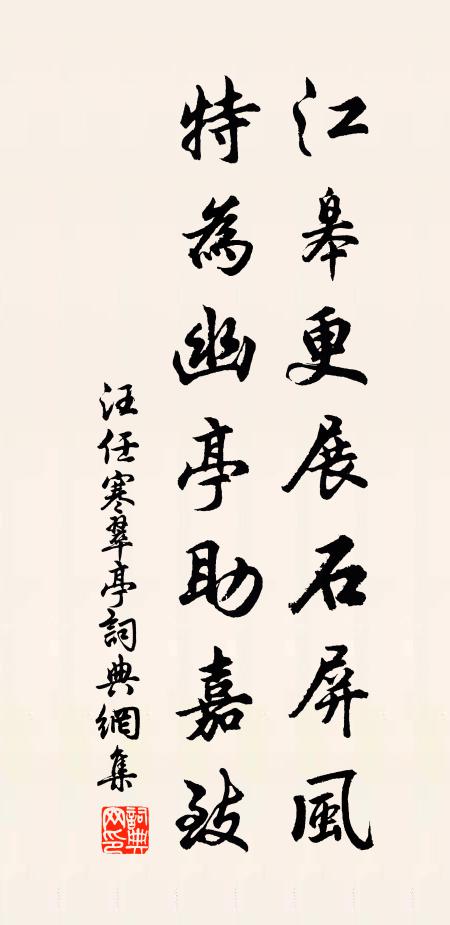 江皋更展石屏風
特為幽亭助嘉致
汪任寒翠亭詞典網集
詞典網印